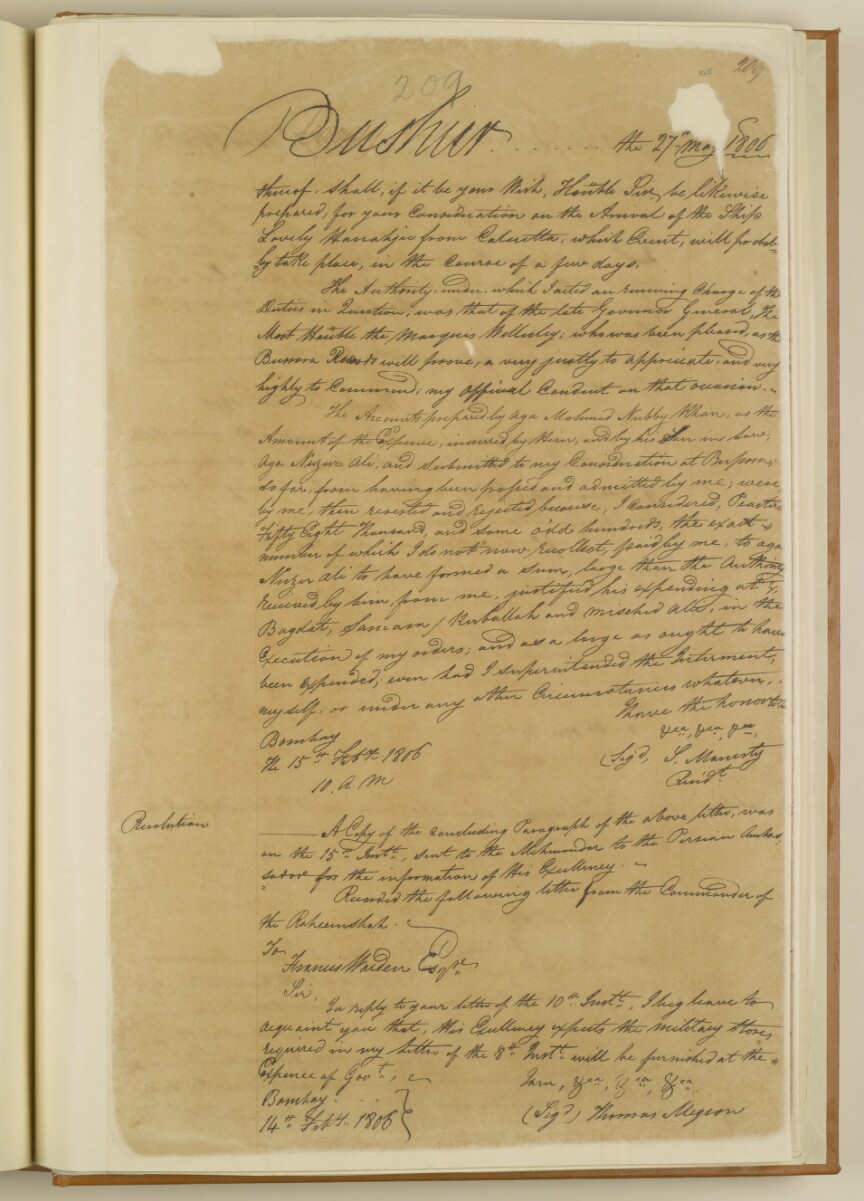 209
209
Bushier . . . . . . . the 27th May 1806
thereof. shall, if it be your Wish, Honble Sir, be likewise
prepared, for your Consideration on the Arrival of the Ship
Lovely Harrahjee from Calcutta, which Event, will probab-
-ly take place, in the Course of a few days.
The Authority, under which I acted on renewing Charge of the
Duties in Question, was that of the late Governor General, The
Most Honble the, Marquis Wellesley; who was been pleased, as the
Bussora Records will prove, a very justly to appreciate, and very
highly to Commend; my official Conduct on that occasion.
The Accounts prepared by Aga Mohmed Nubby Khan, as the
Amount of the Expence, incurred by Him, and by his Son in law,
Aga Nuzur Ali, and submitted to my Consideration at Bussora,
so far, from having been passed and admitted by me, were
by me, then resisted and rejected because, I considered, Piastres
Fifty Eight Thousand, and some odd hundreds, the exact
number of which I do not now recollect, paid by me, to aga
Nuzur Ali to have formed a Sum, large than the Authority
received by him, from me, justified his expending at
Bagdat, Samara / Kerballah and Misched Ali, in the
Execution of my orders; and as a large as ought to have
been Expended, even had I superintended the Interment,
myself, or under any other Circumstances whatever.
I have the honor to
&ca, &ca, &ca,
Bombay
the 15th Feby. 1806
10 A. M
(Sigd) S. Manesty
Resdt.
Resolution
A Copy of the concluding Paragraph of the above letter, was
on the 15th Instt., sent to the Mehmandar to the Persian Ambas-
sador for the information of His Excellency.
Received the following letter from the Commander of
the Raheemshah.
To
Francis Warden Esqre.
Sir,
In reply to your letter of the 10th Instt., I beg leave to
acquaint you that, His Excellency expects the military stores
required in my letter of the 8th Instt. will be furnished at the
Expence of Govt.,
I am, &ca, &ca, &ca.
Bombay. . . .
14th Feby. 1806
(Sigd) Thomas